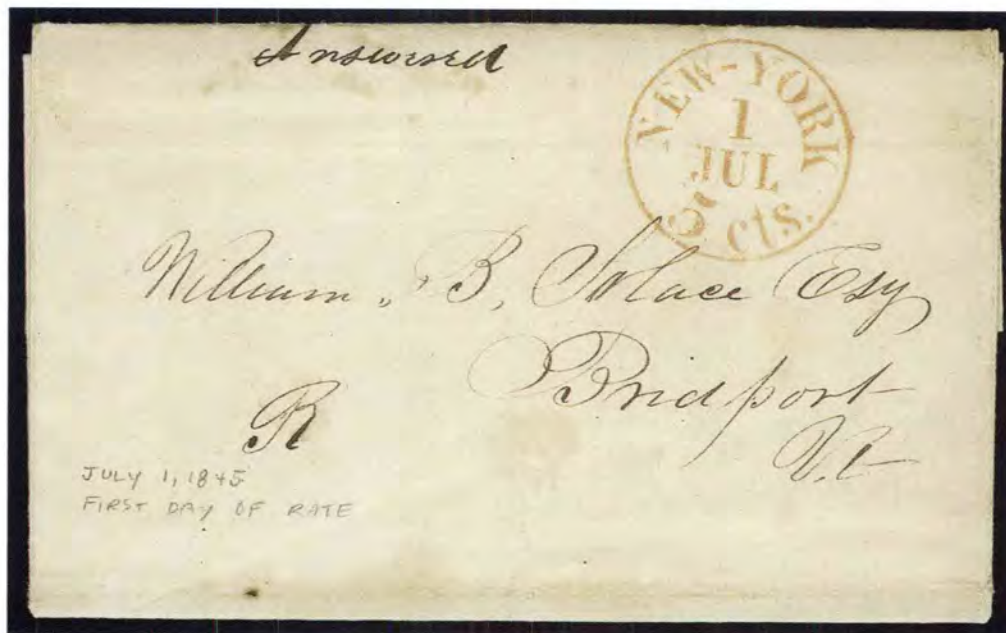 Answered
NEW-YORK
1
JUL
5 cts.
William. B, Solace Esq
Bridport
Vt
R
JULY 1, 1845
FIRST DAY OF RATE